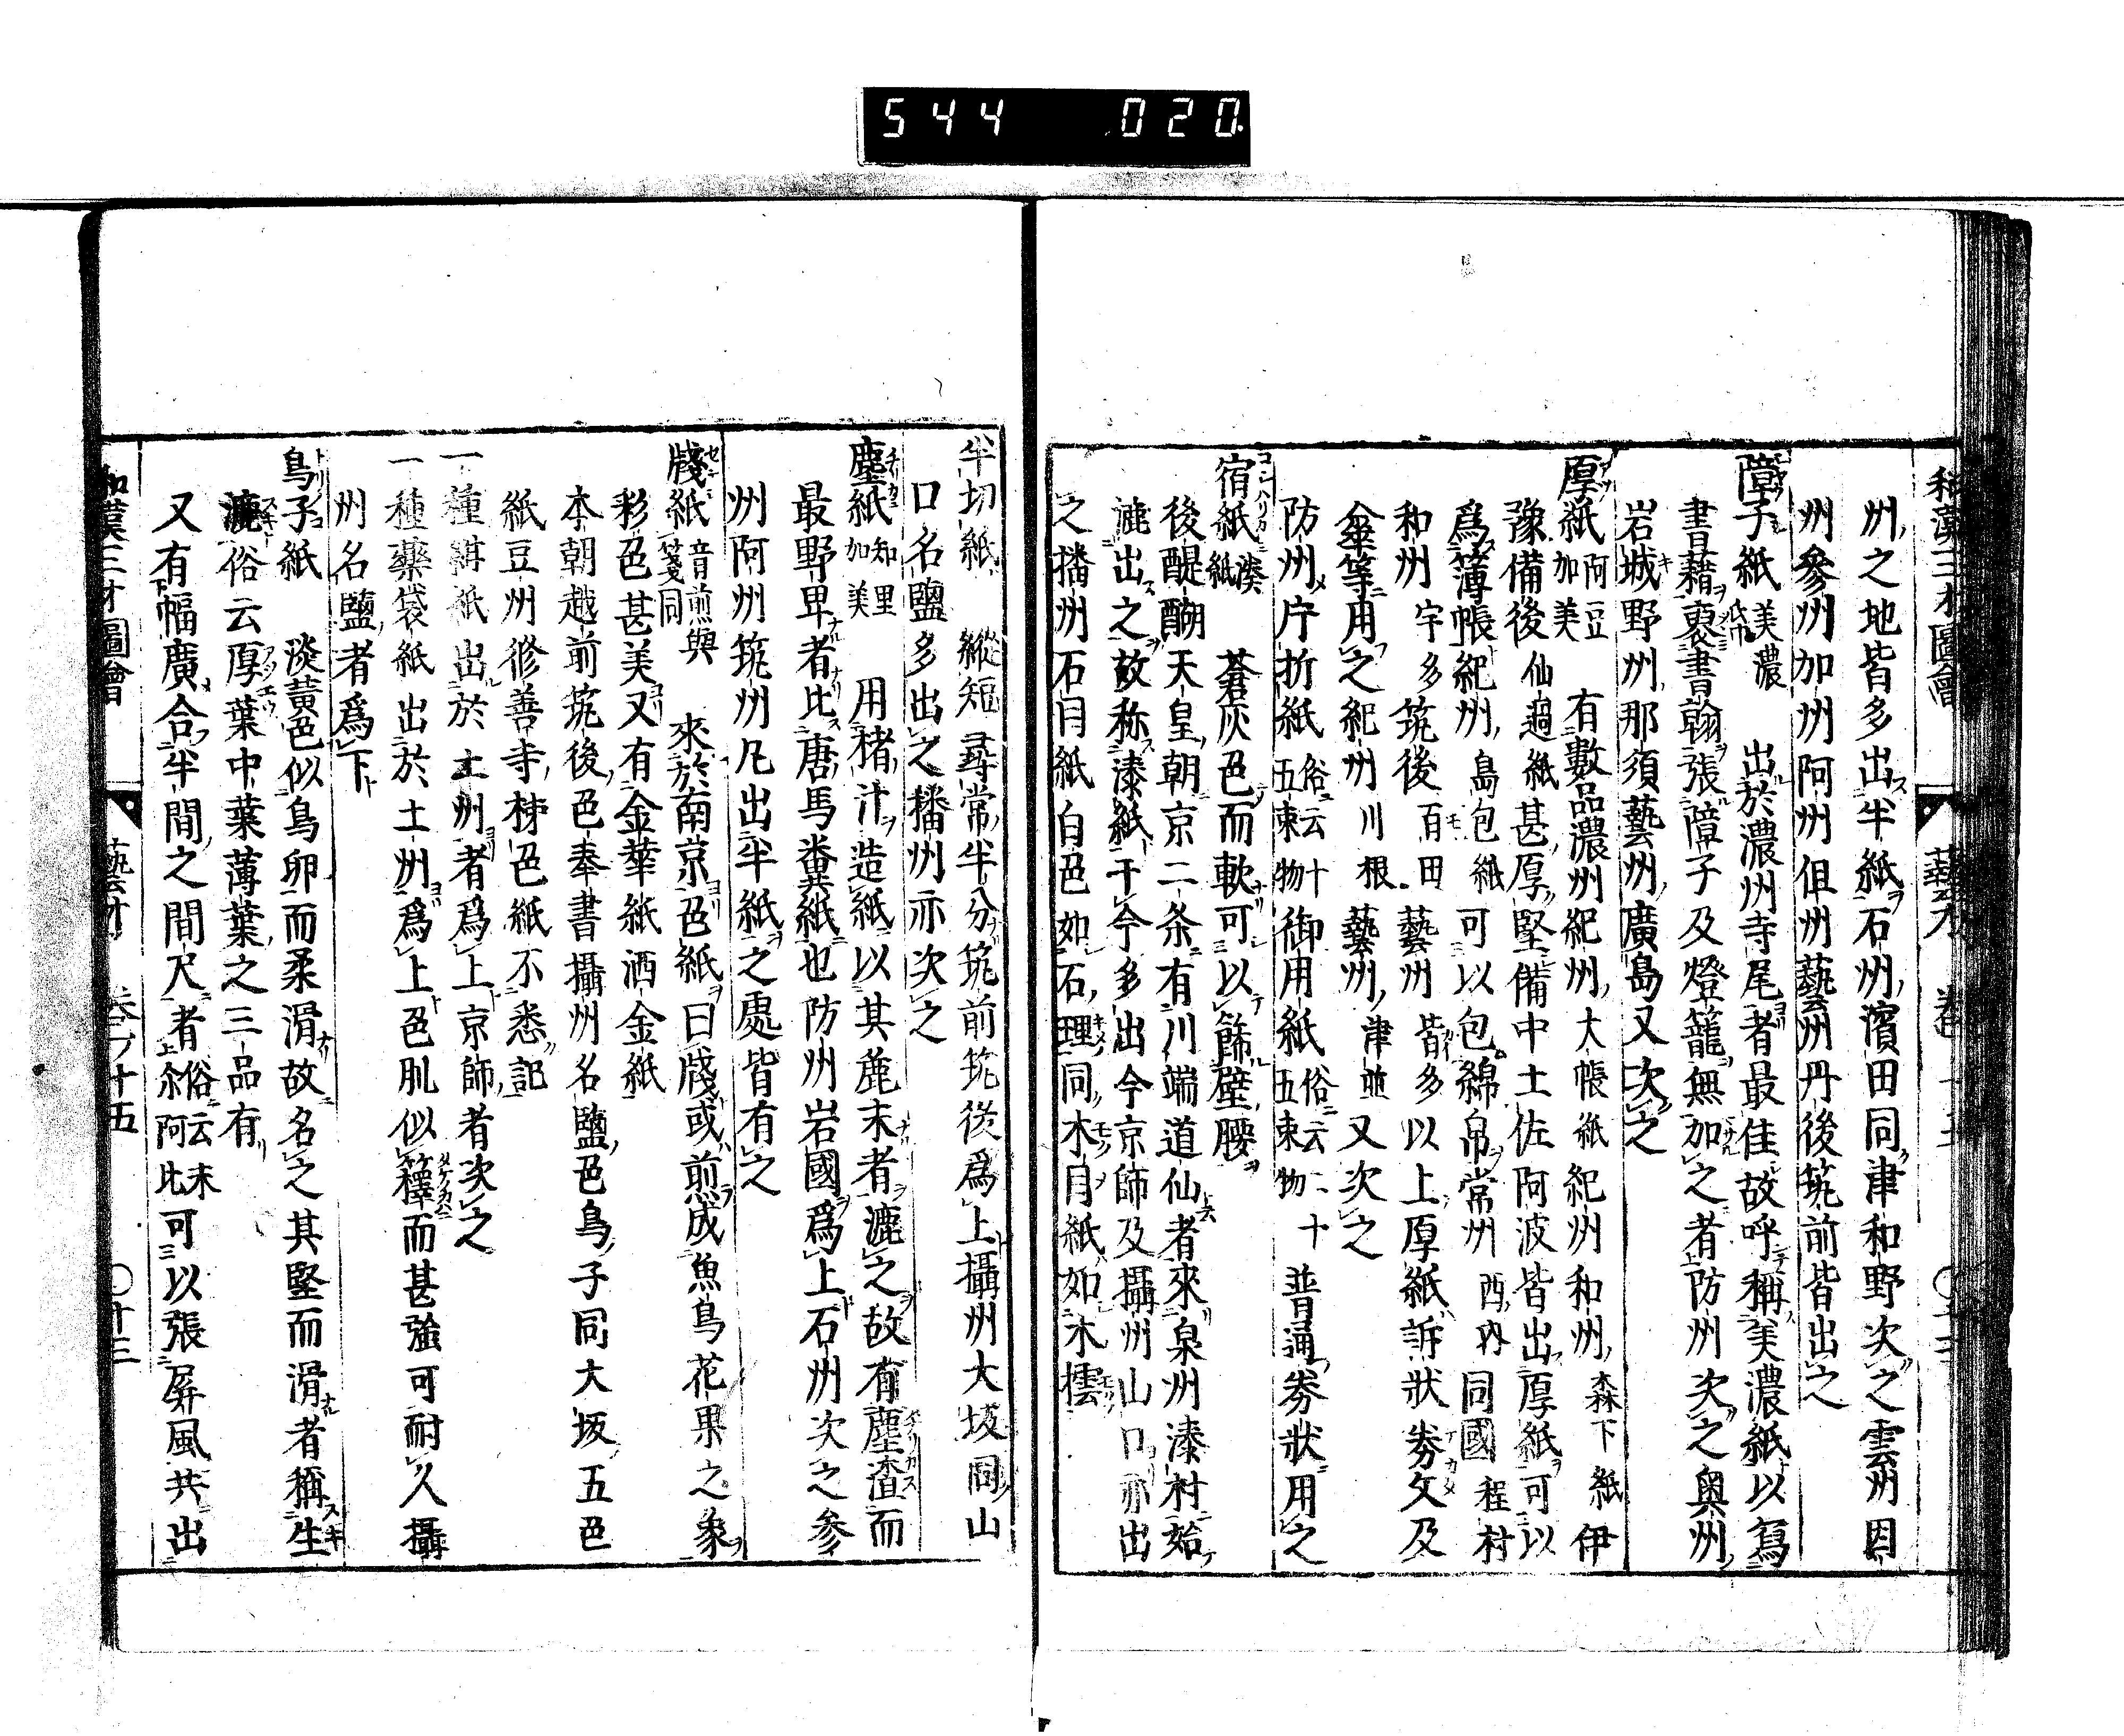 544 020
和漢三才圖會 藝才 卷
州之地皆多出半紙石州濱田同津和野次之雲州因
州參州加州阿州但州藝州丹後筑前皆出之
障子紙 美濃紙 出於濃州寺尾者最佳故呼稱美濃紙以寫
書藉裹書翰張障子及燈籠無加之者防州次之奥州
岩城野州那須藝州廣島又次之
厚紙 阿豆加美 有數品濃州紀州大帳紙紀州和州森下紙伊
豫備後仙過紙甚厚堅備中土佐阿波皆出厚紙可以
爲簿帳紀州島包紙可以包綿帛常州西内同國程村
和州宇多筑後百田藝州皆多以上厚紙訴狀劵文及
傘等用之紀州川根藝州津並又次之
防州片折紙俗云十五束物御用紙俗云二十五束物普通劵狀用之
宿紙 湊紙 蒼灰色而軟可以餙壁腰
後醍醐天皇朝京二条有川端道仙者來泉州湊村始
漉出之故称湊紙于今多出今京師及攝州山口亦出
之播州石目紙白色如石理同木目紙如木橒
半切紙 縱短尋常半分筑前筑後爲上攝州大坂同山
口名鹽多出之播州亦次之
塵紙 知里加美 用楮汁造紙以其麁末者漉之故有塵渣而
最野卑者比唐馬糞紙也防州岩國爲上石州次之參
州阿州筑州凡出半紙之處皆有之
牋紙 音煎與箋同 來於南京色紙曰牋或煎成魚鳥花果之象
彩色甚美又有金華紙洒金紙
本朝越前筑後色奉書攝州名鹽色鳥子同大坂五色
紙豆州修善寺柹色紙不悉記
一種 紙出於土州者爲上京師者次之
一種藥袋紙出於土州爲上色肌似籜而甚強可耐久攝
州名鹽者爲下
鳥子紙 淡黄色似鳥卵而柔滑故名之其堅而滑者稱生
漉俗云厚葉中葉薄葉之三品有
又有幅廣合半間之間尺者俗云末尒阿比可以張屏風共出
和漢三才圖會 藝才 卷之十五 〇廿三